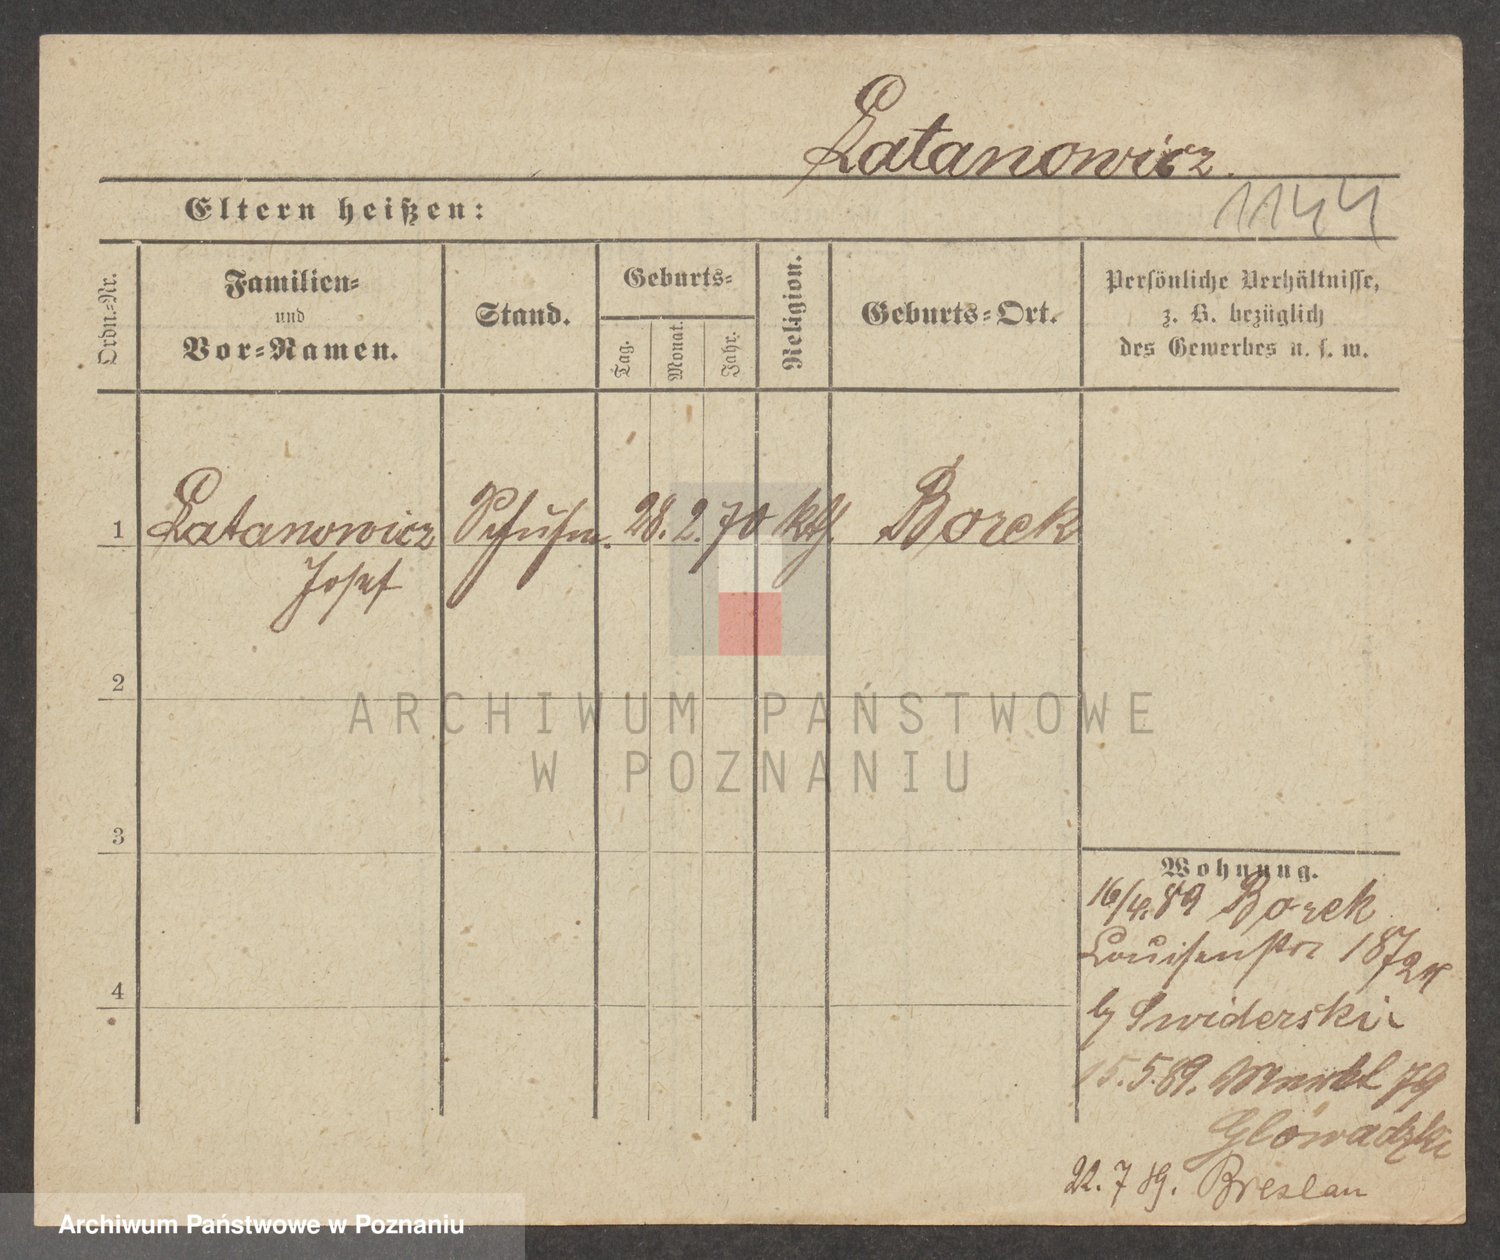 Latanowicz.
1144
Eltern heißen:
Ordn.-Nr.
Familien-
und
Vor-Namen.
Stand.
Geburts-
Tag.
Monat.
Jahr.
Religion.
Geburts-Ort.
Persönliche Verhältnisse,
z. B. bezüglich
des Gewerbes u. s. w.
1 Latanowicz Schuhm. 28. 2. 70 kth. Borek
Josef
2
3
4
Wohnung.
16/4.89 Borek
Louisenstr 18
b/ Swiderski
15.5.89. Markt 79
Glowadzki
22.7 89. Breslau
ARCHIWUM PAŃSTWOWE
W POZNANIU
Archiwum Państwowe w Poznaniu